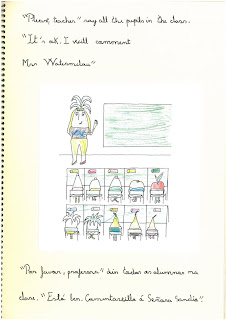 "Please, teacher" say all the pupils in the class.
"It's ok. I will comment
Mrs Watermelon"
"Por favor, profesora" din todos os alumnos na
clase. "Está ben. Comentareillo á Señora Sandía".